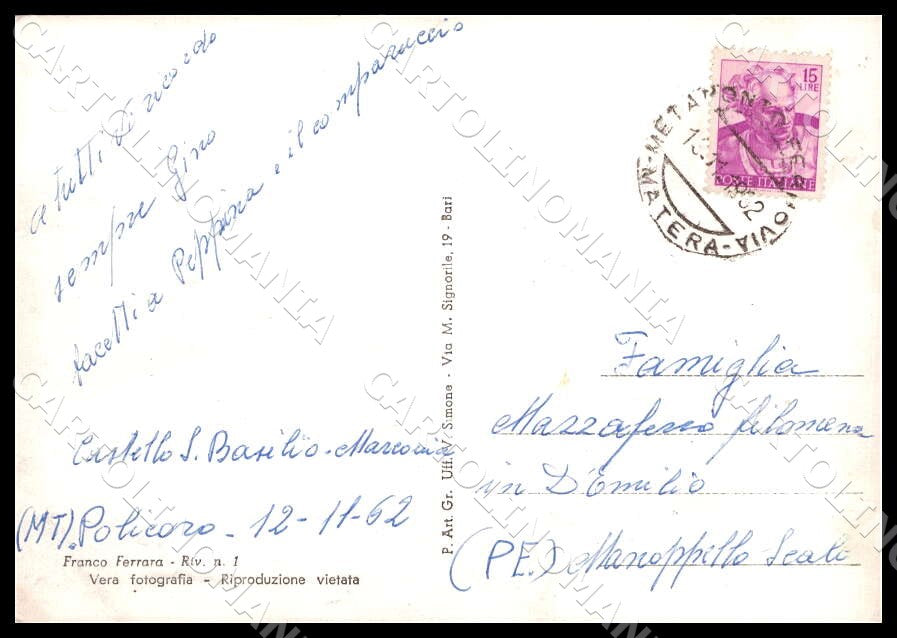 a tutti di ricordo
sempre Gino
Peppina e il comparuccio
Castello S. Basilio - Marconia
(MT). Policoro - 12-11-62
Franco Ferrara - Riv. n. 1
Vera fotografia - Riproduzione vietata
P. Art. Gr. Uff. V. Simone - Via M. Signorile, 19 - Bari
15
LIRE
POSTE ITALIANE
METAPONTO FERROVIA
MATERA
Famiglia
Mazzaferro filomena
in D'Emilio
(PE.) Manoppello Scalo
CARTOLINOMANIA